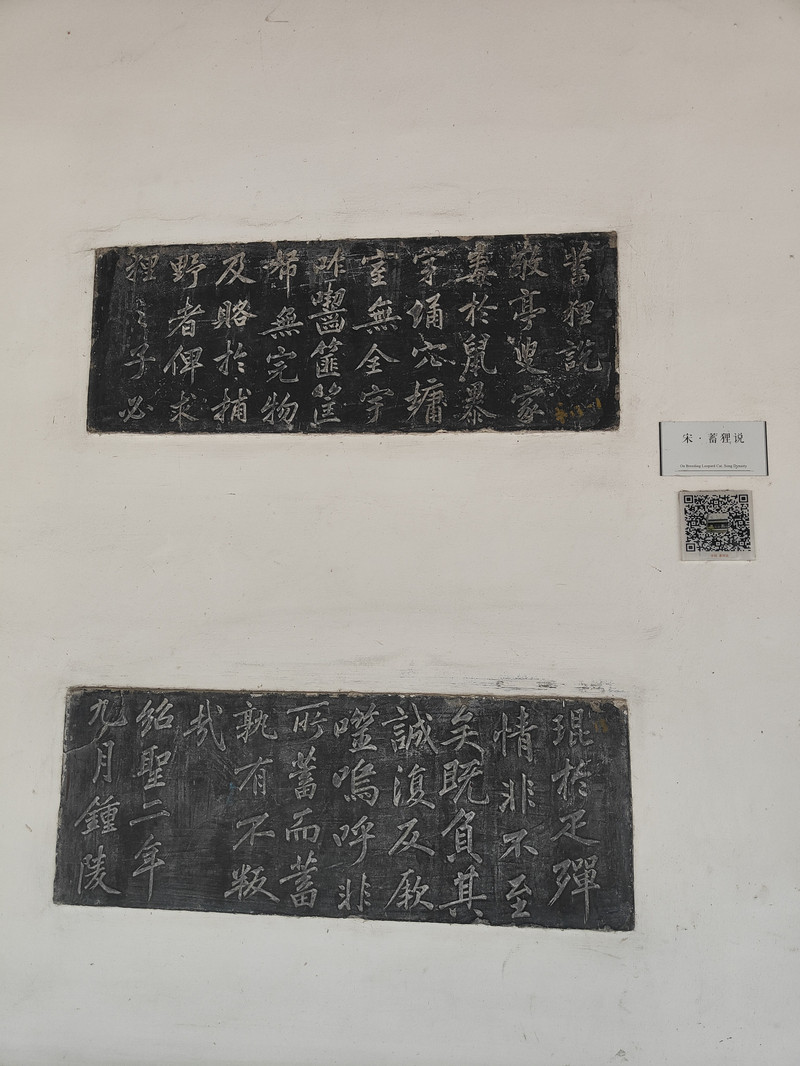 蓄狸說
敬亭叟家
毒於鼠暴
穿墉穴墉
室無全宇
咋齧篚筐
帑無完物
及賂於捕
野者俾求
狸之子必
琨於疋磾
情非不至
矣既負其
誠復反厥
噬嗚呼非
所蓄而蓄
孰有不叛
哉
紹聖二年
九月鍾陵
宋·蓄狸说
On Breeding Leopard Cat, Song Dynasty